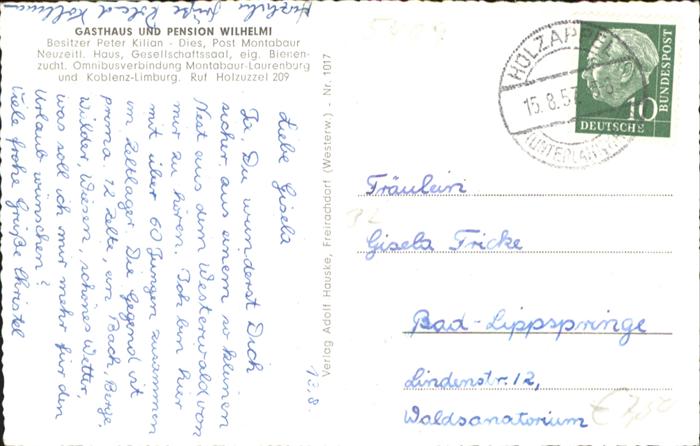 Herzliche Grüße Roland Kollman
GASTHAUS UND PENSION WILHELMI
Besitzer Peter Kilian - Dies, Post Montabaur
Neuzeitl. Haus, Gesellschaftssaal, eig. Bienen-
zucht. Omnibusverbindung Montabaur-Laurenburg
und Koblenz-Limburg. Ruf Holzuzzel 209
13.8.
Liebe Gisela
Ja, Du wunderst Dich
sicher aus einem so kleinen
Nest aus dem Westerwald von
mir zu hören. Ich bin hier
mit über 60 Jungen zusammen
im Zeltlager. Die Gegend ist
prima. 12 Zelte, am Bach, Berge
Wälder, Wiesen, schönes Wetter,
was soll ich mir mehr für den
Urlaub wünschen?
Viele frohe Grüße Christel
Verlag Adolf Hauske, Freirachdorf (Westerw.) - Nr. 1017
HOLZAPPEL
15.8.57
(UNTERLAHN
10
DEUTSCHE
BUNDESPOST
Fräulein
Gisela Fricke
Bad-Lippspringe
Lindenstr. 12,
Waldsanatorium